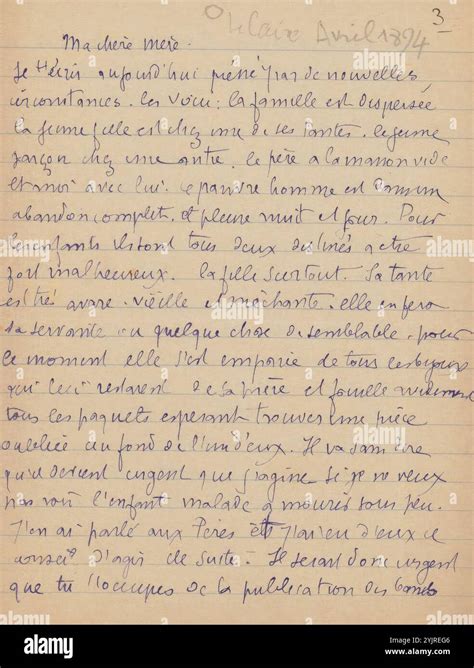 3
Avril 1894
Ma chère mère.
Je t'écris aujourd'hui pressé par de nouvelles
circonstances. les voici : la famille est dispersée
la jeune fille est chez une de ses tantes. le jeune
garçon chez une autre. le père a la maison vide
et moi avec lui. ce pauvre homme est dans un
abandon complet. et pleure nuit et jour. Pour
les enfants ils sont tous deux destinés a être
fort malheureux. la fille surtout. Sa tante
est très avare. vieille et méchante. elle en fera
sa servante ou quelque chose de semblable. pour
le moment elle s'est emparée de tous les bijoux
qui restaient de sa mère et fouille
tous les paquets esperant trouver une pièce
oubliée au fond de l'un d'eux. Il va sans dire
qu'il devient urgent que j'agisse si je ne veux
pas voir l'enfant malade a mourir sous peu.
J'en ai parlé aux Pères et J'ai eu d'eux ce
conseil d'agir de suite. Il serait donc urgent
que tu t'occupes de la publication des bans
alamy
Image ID: 2YJREG6
www.alamy.com